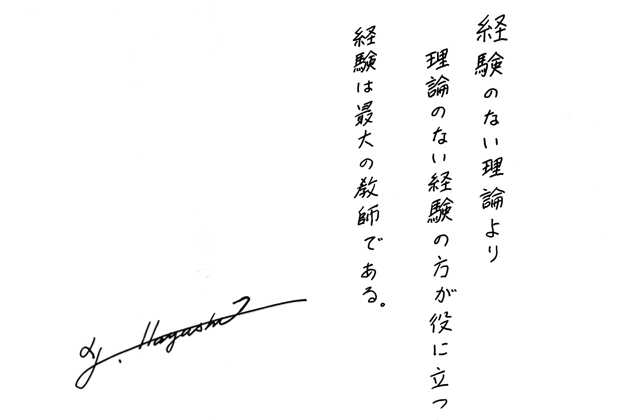 経験のない理論より
理論のない経験の方が役に立つ
経験は最大の教師である。
y. Hayashi